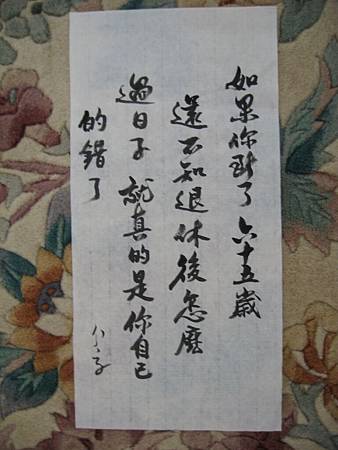 如果你到了六十五歲
還不知退休後怎麼
過日子就真的是你自己
的錯了